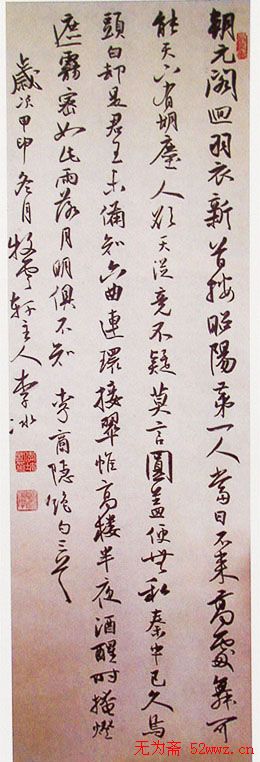 朝元閣迴羽衣新首按昭陽第一人當日不來高處舞可
能天下有胡塵人欲天從竟不疑莫言圓蓋便無私秦中已久烏
頭白却是君王未備知六曲連環接翠帷高樓半夜酒醒時掩燈
遮霧密如此雨落月明俱不知 李商隱絕句三首
歲次甲申冬月牧雲軒主人李冰
无为斋 52wwz.cn